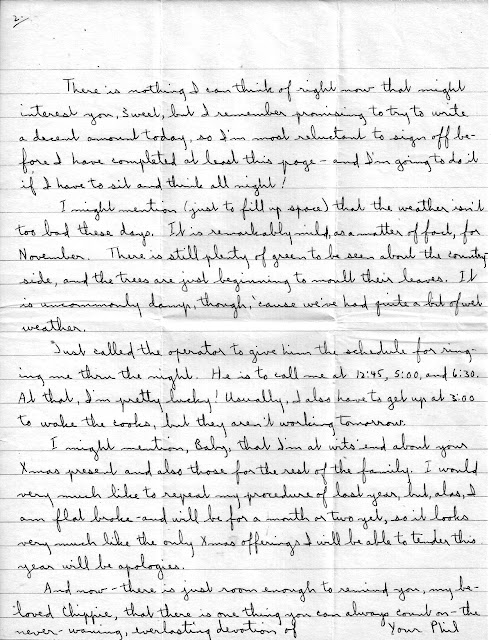 2.
There is nothing I can think of right now that might
interest you, Sweet, but I remember promising to try to write
a decent amount today, so I'm most reluctant to sign off be-
fore I have completed at least this page - and I'm going to do it
if I have to sit and think all night!
I might mention (just to fill up space) that the weather isn't
too bad these days. It is remarkably mild, as a matter of fact, for
November. There is still plenty of green to be seen about the country-
side, and the trees are just beginning to moult their leaves. It
is uncommonly damp, though, 'cause we've had quite a bit of wet
weather.
Just called the operator to give him the schedule for ring-
ing me thru the night. He is to call me at 12:45, 5:00, and 6:30.
At that, I'm pretty lucky! Usually, I also have to get up at 3:00
to wake the cooks, but they aren't working tomorrow.
I might mention, Baby, that I'm at wits' end about your
Xmas present and also those for the rest of the family. I would
very much like to repeat my procedure of last year, but, alas, I
am flat broke - and will be for a month or two yet, so it looks
very much like the only Xmas offerings I will be able to tender this
year will be apologies.
And now - there is just room enough to remind you, my be-
loved Chippie, that there is one thing you can always count on - the
never-waning, everlasting devotion of Your Phil